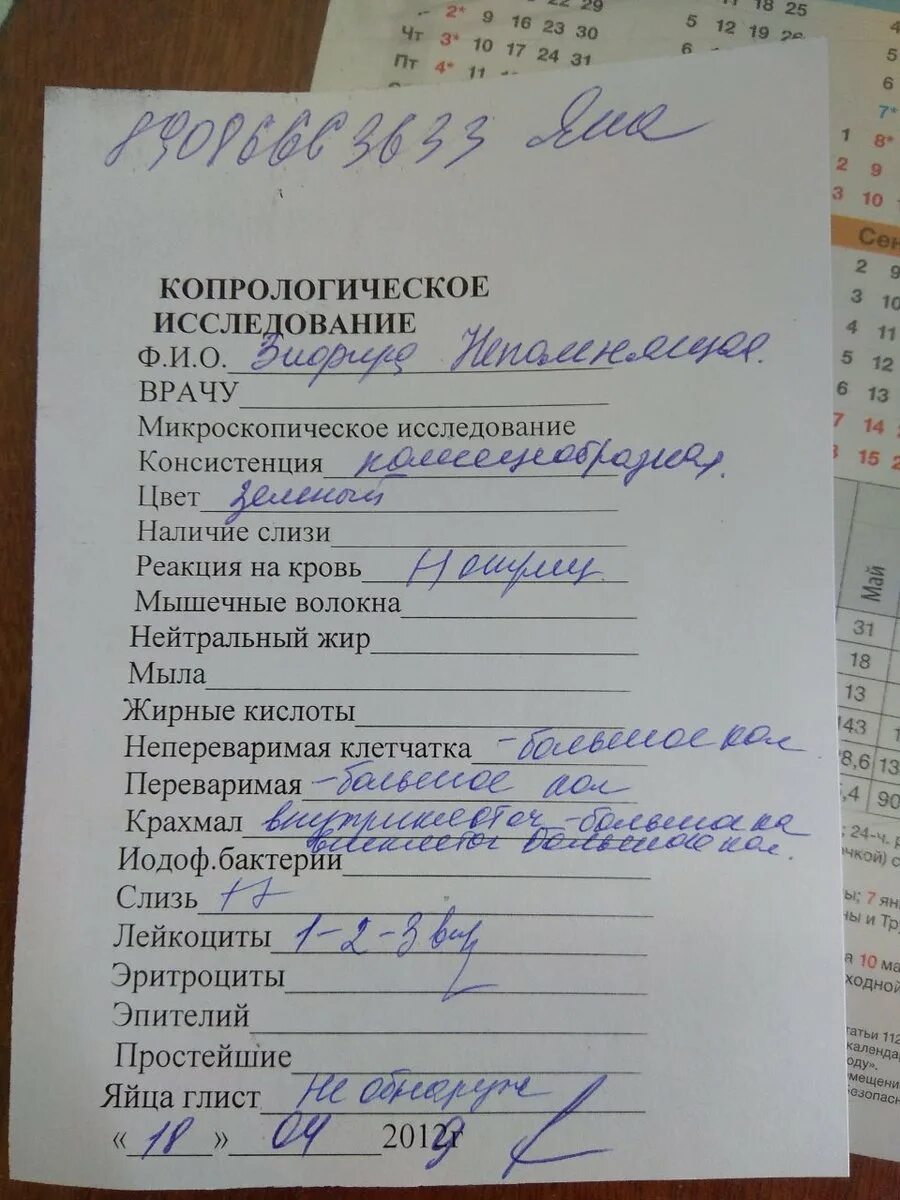 22 29
18 25
2* 9 16 23 30
5 12 19 26
Чт 3* 10 17 24 31
6
Пт 4* 11
4
5
6
7*
1 8*
2 9
3 10
89086663633 Яна
Сен
2 9
3 10
4 11
5 12
6 13
7 14
8 15
КОПРОЛОГИЧЕСКОЕ
ИССЛЕДОВАНИЕ
Ф.И.О. Непомнящая.
ВРАЧУ
Микроскопическое исследование
Консистенция кашецеобразная,
Цвет зеленый
Наличие слизи
Реакция на кровь
Мышечные волокна
Нейтральный жир
Мыла
Жирные кислоты
Непереваримая клетчатка - большое кол
Переваримая - большое кол
Крахмал внутриклеточ - большое ка
внеклеточ большое кол.
Иодоф.бактерии
Слизь ++
Лейкоциты 1-2-3 в п/з
Эритроциты
Эпителий
Простейшие
Яйца глист Не обнаруж
«18» 04 2012г
Май
31
18
13
143
78,6 13
5,4 90
; 24-ч. р
очкой) с
ры; 7 янв
ны и Тру
а 10 ма
ходной
татьи 112
календа
оду».
мещени
Безопасн